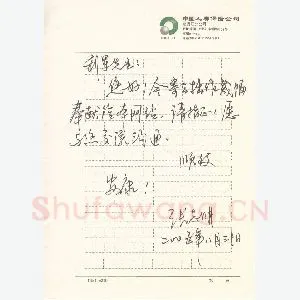 中国人寿保险公司
新军先生：
您好！今寄去拙作数幅
奉献给本网站，请指正！愿
与您交流沟通。
顺祝
安康！
二〇〇五年八月三十日
Shufawang.CN